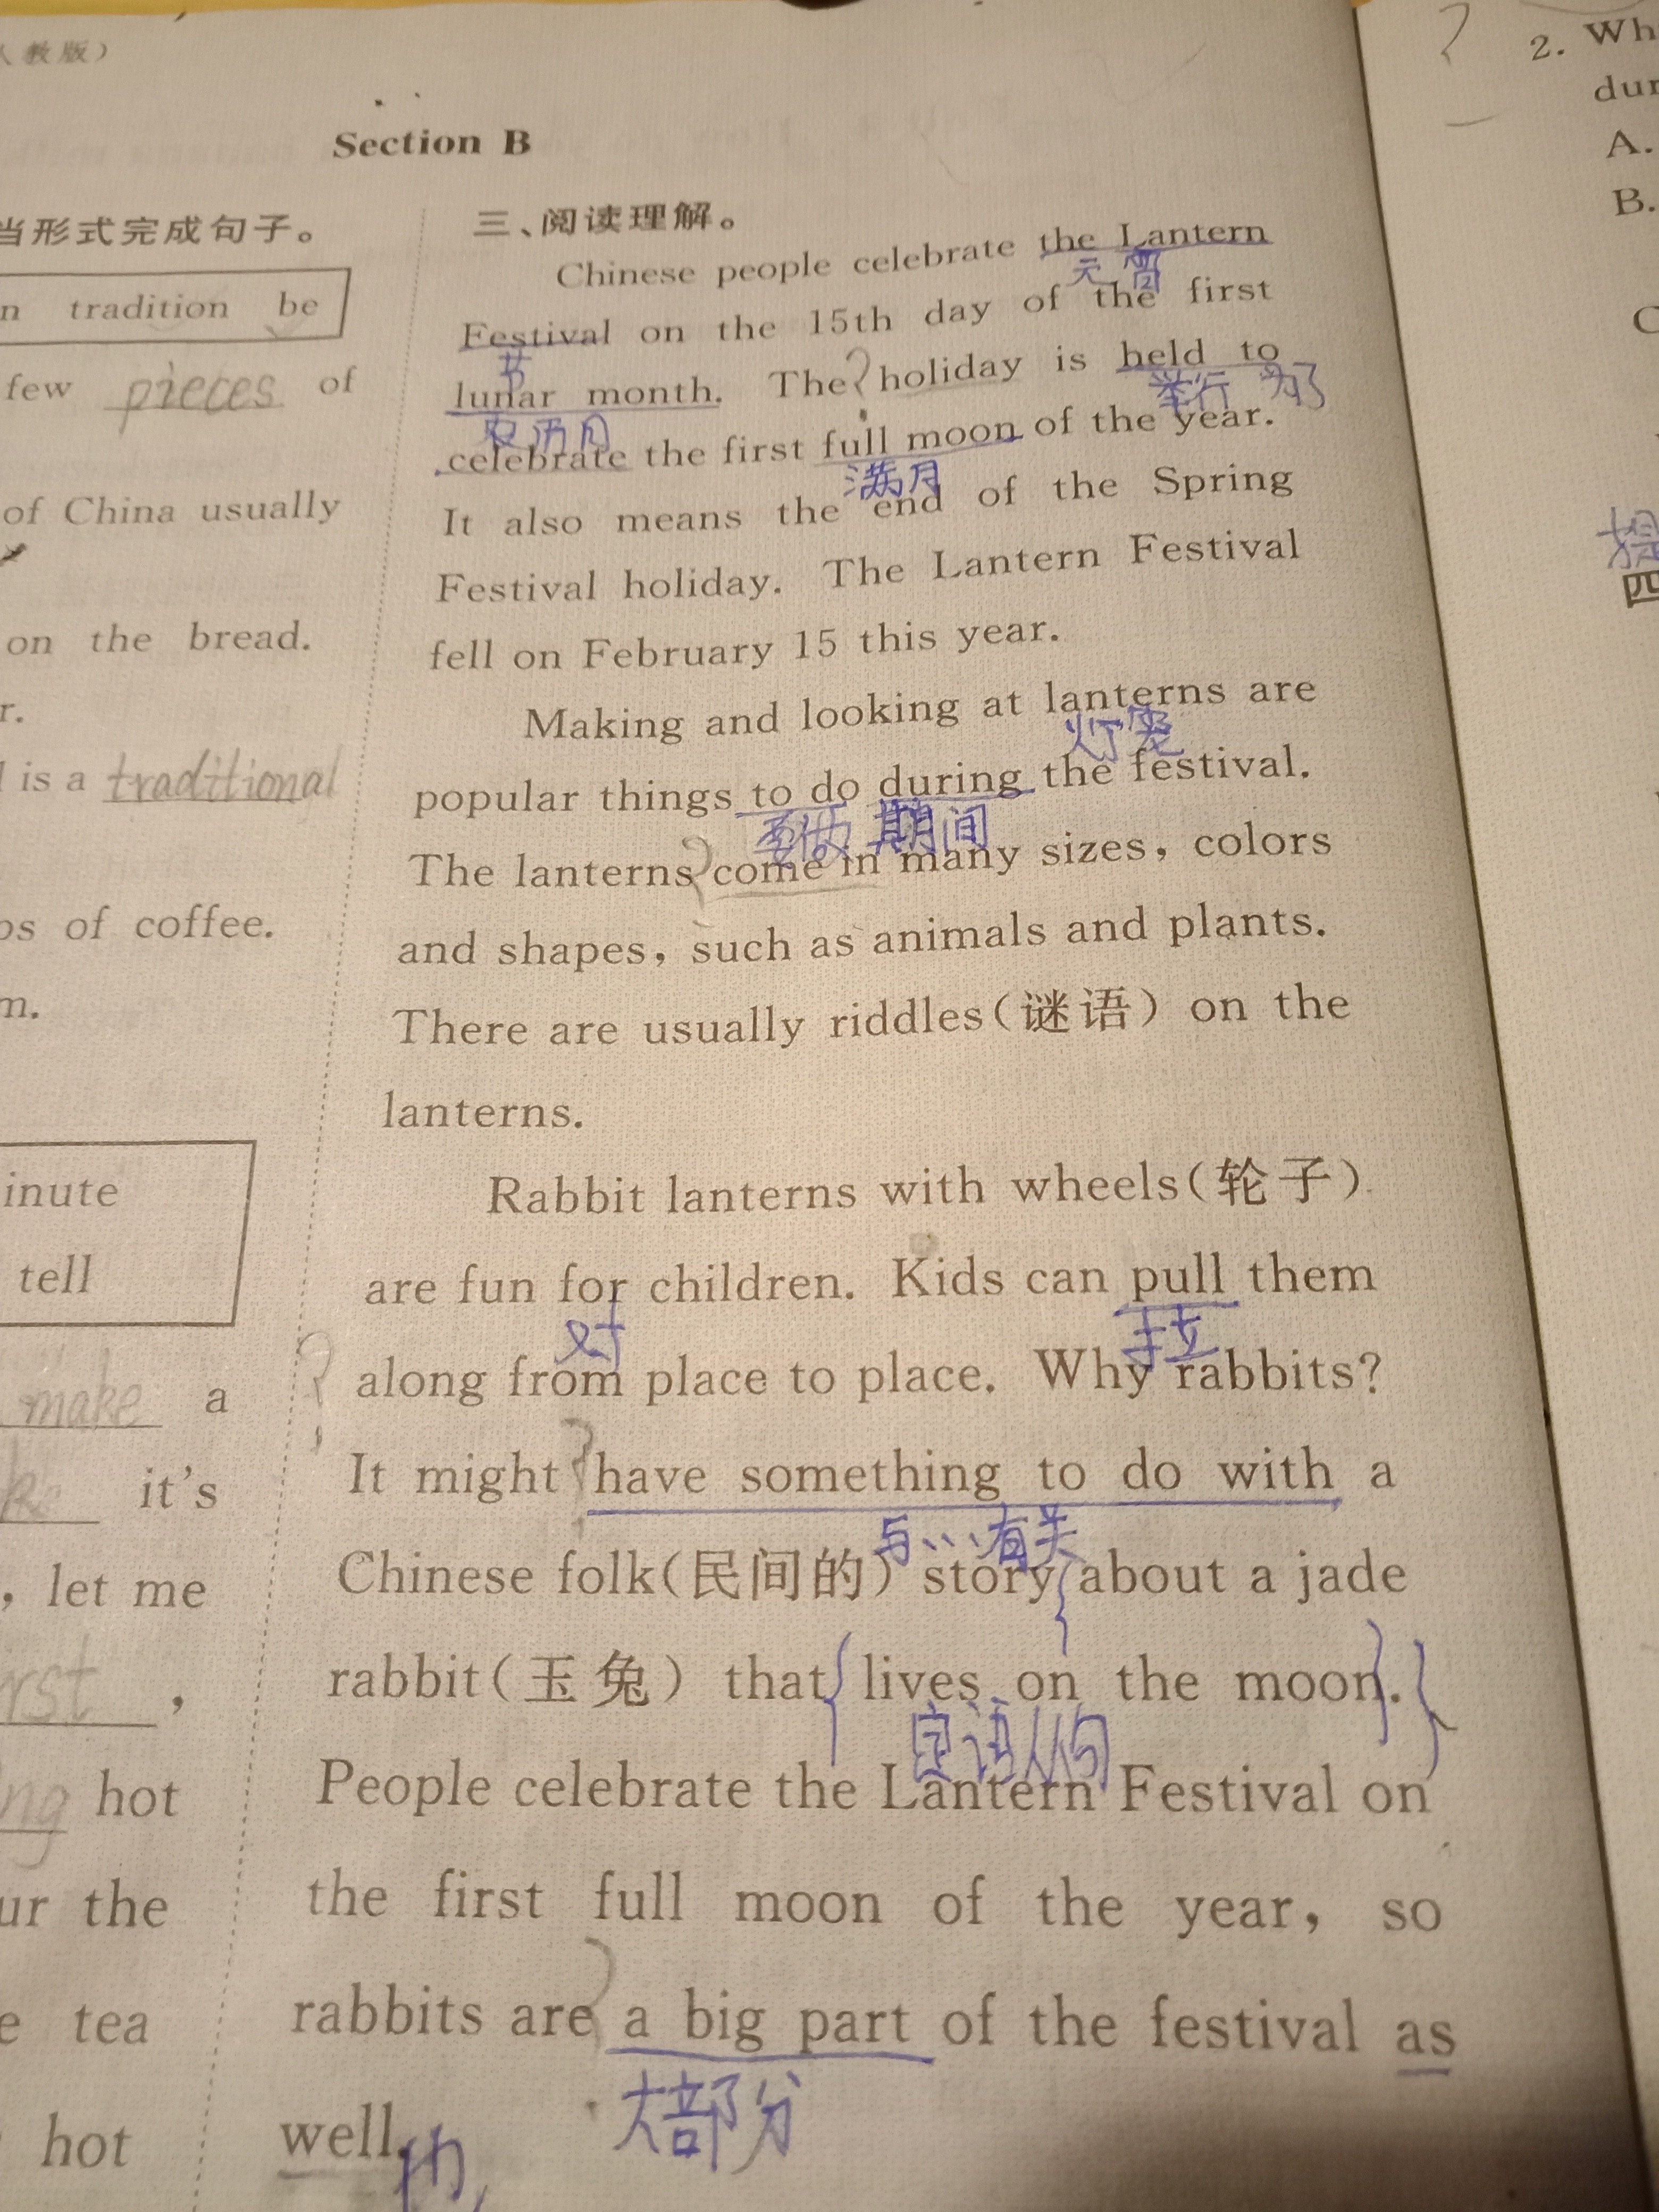 人教版）
Section B
当形式完成句子。
tradition be
few pieces of
of China usually
on the bread.
is a traditional
of coffee.
tell
make a
it's
, let me
,
hot
the
tea
hot
三、阅读理解。
Chinese people celebrate the Lantern
元宵
Festival on the 15th day of the first
节
lunar month. The ? holiday is held to
农历月 举行 为了
celebrate the first full moon of the year.
满月
It also means the end of the Spring
Festival holiday. The Lantern Festival
fell on February 15 this year.
Making and looking at lanterns are
灯笼
popular things to do during the festival.
要做 期间
The lanterns ? come in many sizes, colors
and shapes, such as animals and plants.
There are usually riddles(谜语) on the
lanterns.
Rabbit lanterns with wheels(轮子)
are fun for children. Kids can pull them
对 拉
? along from place to place. Why rabbits?
It might ? have something to do with a
与…有关
Chinese folk(民间的) story about a jade
rabbit(玉兔) that lives on the moon.
定语从句
People celebrate the Lantern Festival on
the first full moon of the year, so
rabbits are ? a big part of the festival as
大部分
well.
也
?
2. Wh
A.
B.
C
四